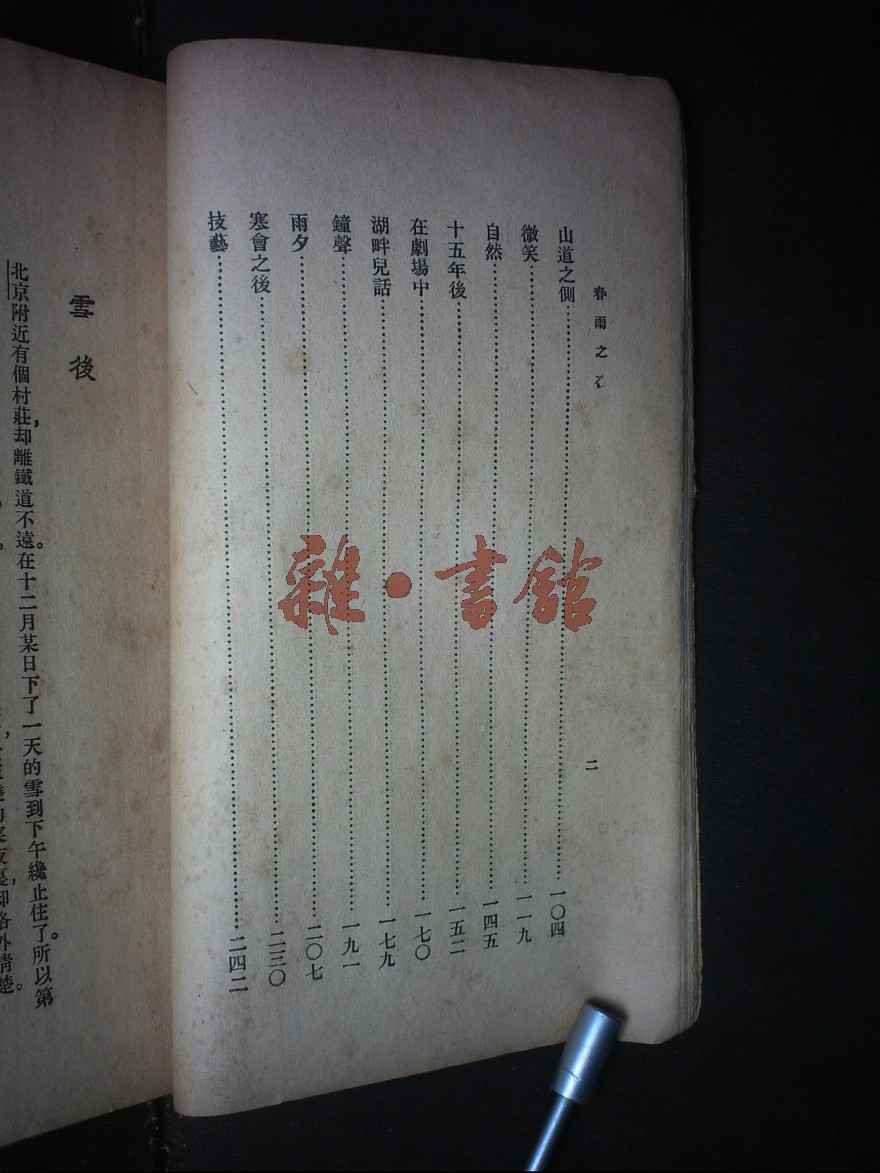 春雨之
二
山道之側 一〇四
微笑 一一九
自然 一四五
十五年後 一五二
在劇場中 一七〇
湖畔兒話 一七九
鐘聲 一九一
雨夕 二〇七
寒會之後 二三〇
技藝 二四二
雜·書館
雪後
北京附近有個村莊,却離鐵道不遠。在十二月某日下了一天的雪到下午纔止住了。所以第
却格外清楚。